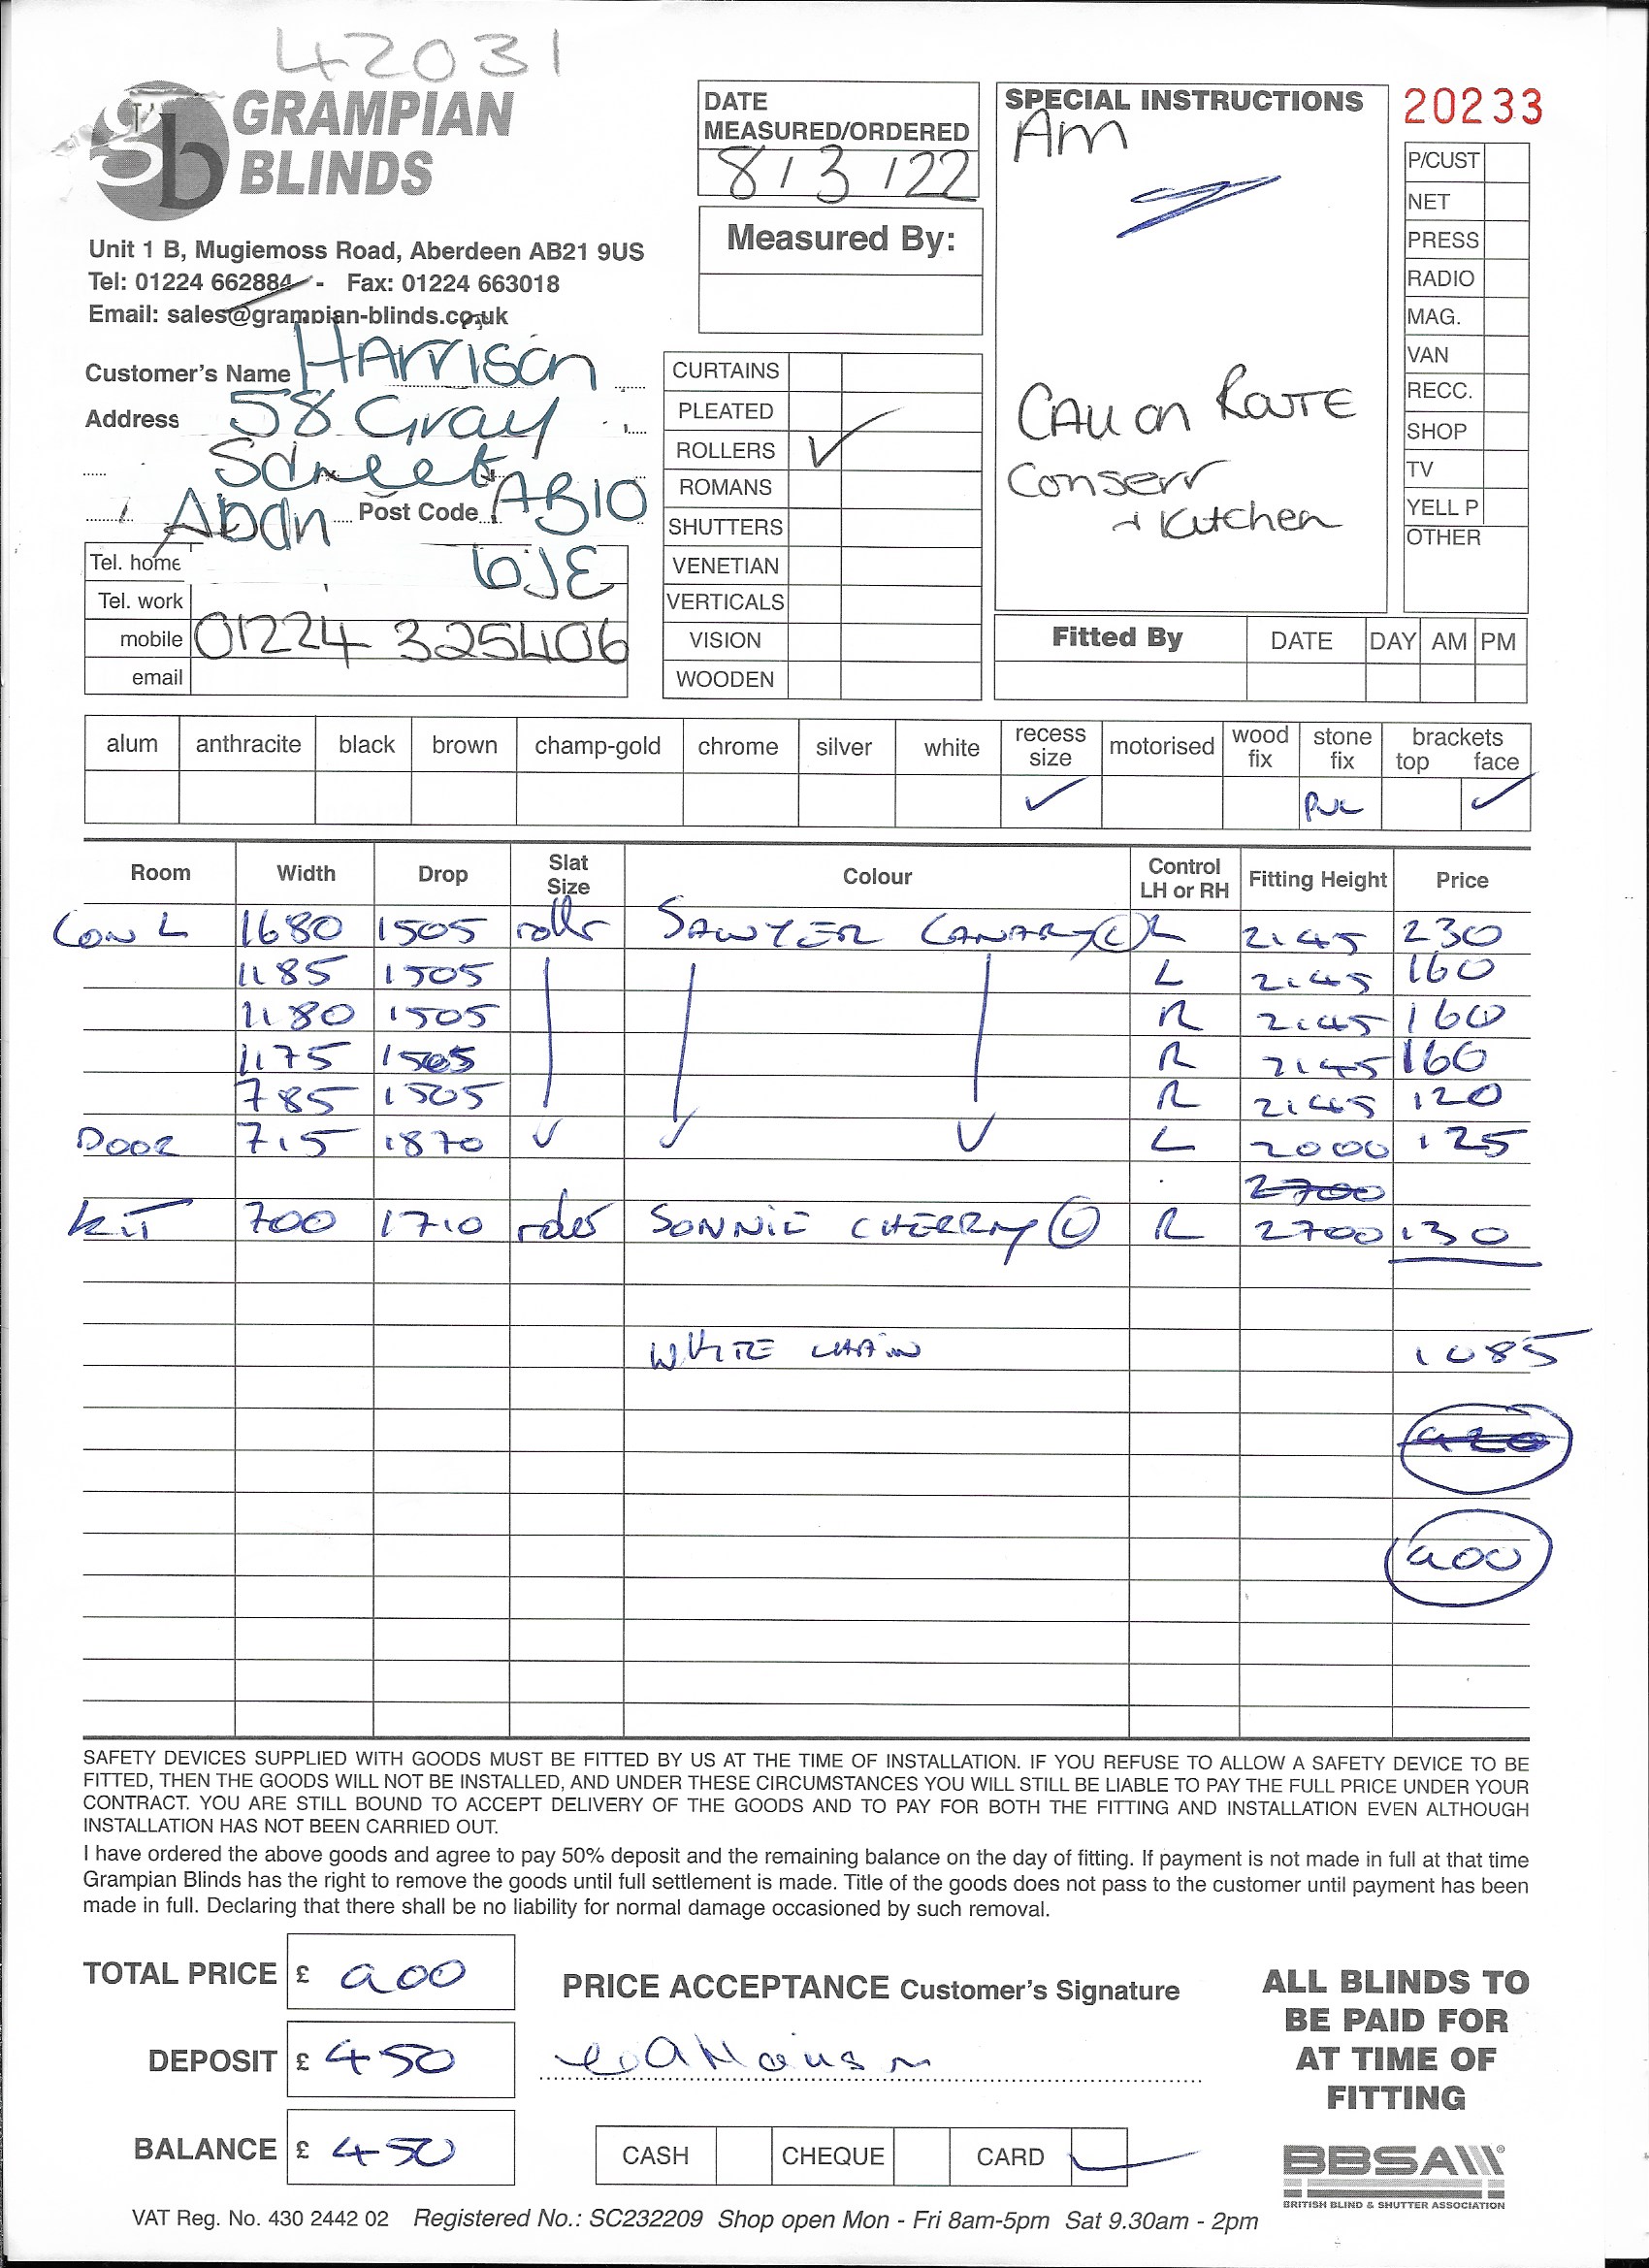 42031
GRAMPIAN
BLINDS
Unit 1 B, Mugiemoss Road, Aberdeen AB21 9US
Tel: 01224 662884 - Fax: 01224 663018
Email: sales@grampian-blinds.co.uk
Customer's Name Harrison
Address 58 Gray
Street
Abdn Post Code AB10
6JE
Tel. home
Tel. work
mobile 01224 325406
email
DATE
MEASURED/ORDERED
8/3/22
Measured By:
CURTAINS
PLEATED
ROLLERS ✓
ROMANS
SHUTTERS
VENETIAN
VERTICALS
VISION
WOODEN
SPECIAL INSTRUCTIONS
Am
Call on Route
Conserv
+ Kitchen
20233
P/CUST
NET
PRESS
RADIO
MAG.
VAN
RECC.
SHOP
TV
YELL P
OTHER
Fitted By DATE DAY AM PM
alum anthracite black brown champ-gold chrome silver white recess size motorised wood fix stone fix brackets top face
✓ PVC ✓
Room Width Drop Slat Size Colour Control LH or RH Fitting Height Price
Con L 1680 1505 roller SAWYER CANARY (C) L 2145 230
1185 1505 L 2145 160
1180 1505 R 2145 160
1175 1505 R 2145 160
785 1505 R 2145 120
Door 715 1870 ✓ ✓ ✓ L 2000 125
2700
KIT 700 1710 roller SONNIE CHERRY (C) R 2700 130
WHITE CHAIN 1085
920
900
SAFETY DEVICES SUPPLIED WITH GOODS MUST BE FITTED BY US AT THE TIME OF INSTALLATION. IF YOU REFUSE TO ALLOW A SAFETY DEVICE TO BE
FITTED, THEN THE GOODS WILL NOT BE INSTALLED, AND UNDER THESE CIRCUMSTANCES YOU WILL STILL BE LIABLE TO PAY THE FULL PRICE UNDER YOUR
CONTRACT. YOU ARE STILL BOUND TO ACCEPT DELIVERY OF THE GOODS AND TO PAY FOR BOTH THE FITTING AND INSTALLATION EVEN ALTHOUGH
INSTALLATION HAS NOT BEEN CARRIED OUT.
I have ordered the above goods and agree to pay 50% deposit and the remaining balance on the day of fitting. If payment is not made in full at that time
Grampian Blinds has the right to remove the goods until full settlement is made. Title of the goods does not pass to the customer until payment has been
made in full. Declaring that there shall be no liability for normal damage occasioned by such removal.
TOTAL PRICE £ 900
DEPOSIT £ 450
BALANCE £ 450
PRICE ACCEPTANCE Customer's Signature
CASH CHEQUE CARD ✓
ALL BLINDS TO
BE PAID FOR
AT TIME OF
FITTING
BBSA
BRITISH BLIND & SHUTTER ASSOCIATION
VAT Reg. No. 430 2442 02 Registered No.: SC232209 Shop open Mon - Fri 8am-5pm Sat 9.30am - 2pm